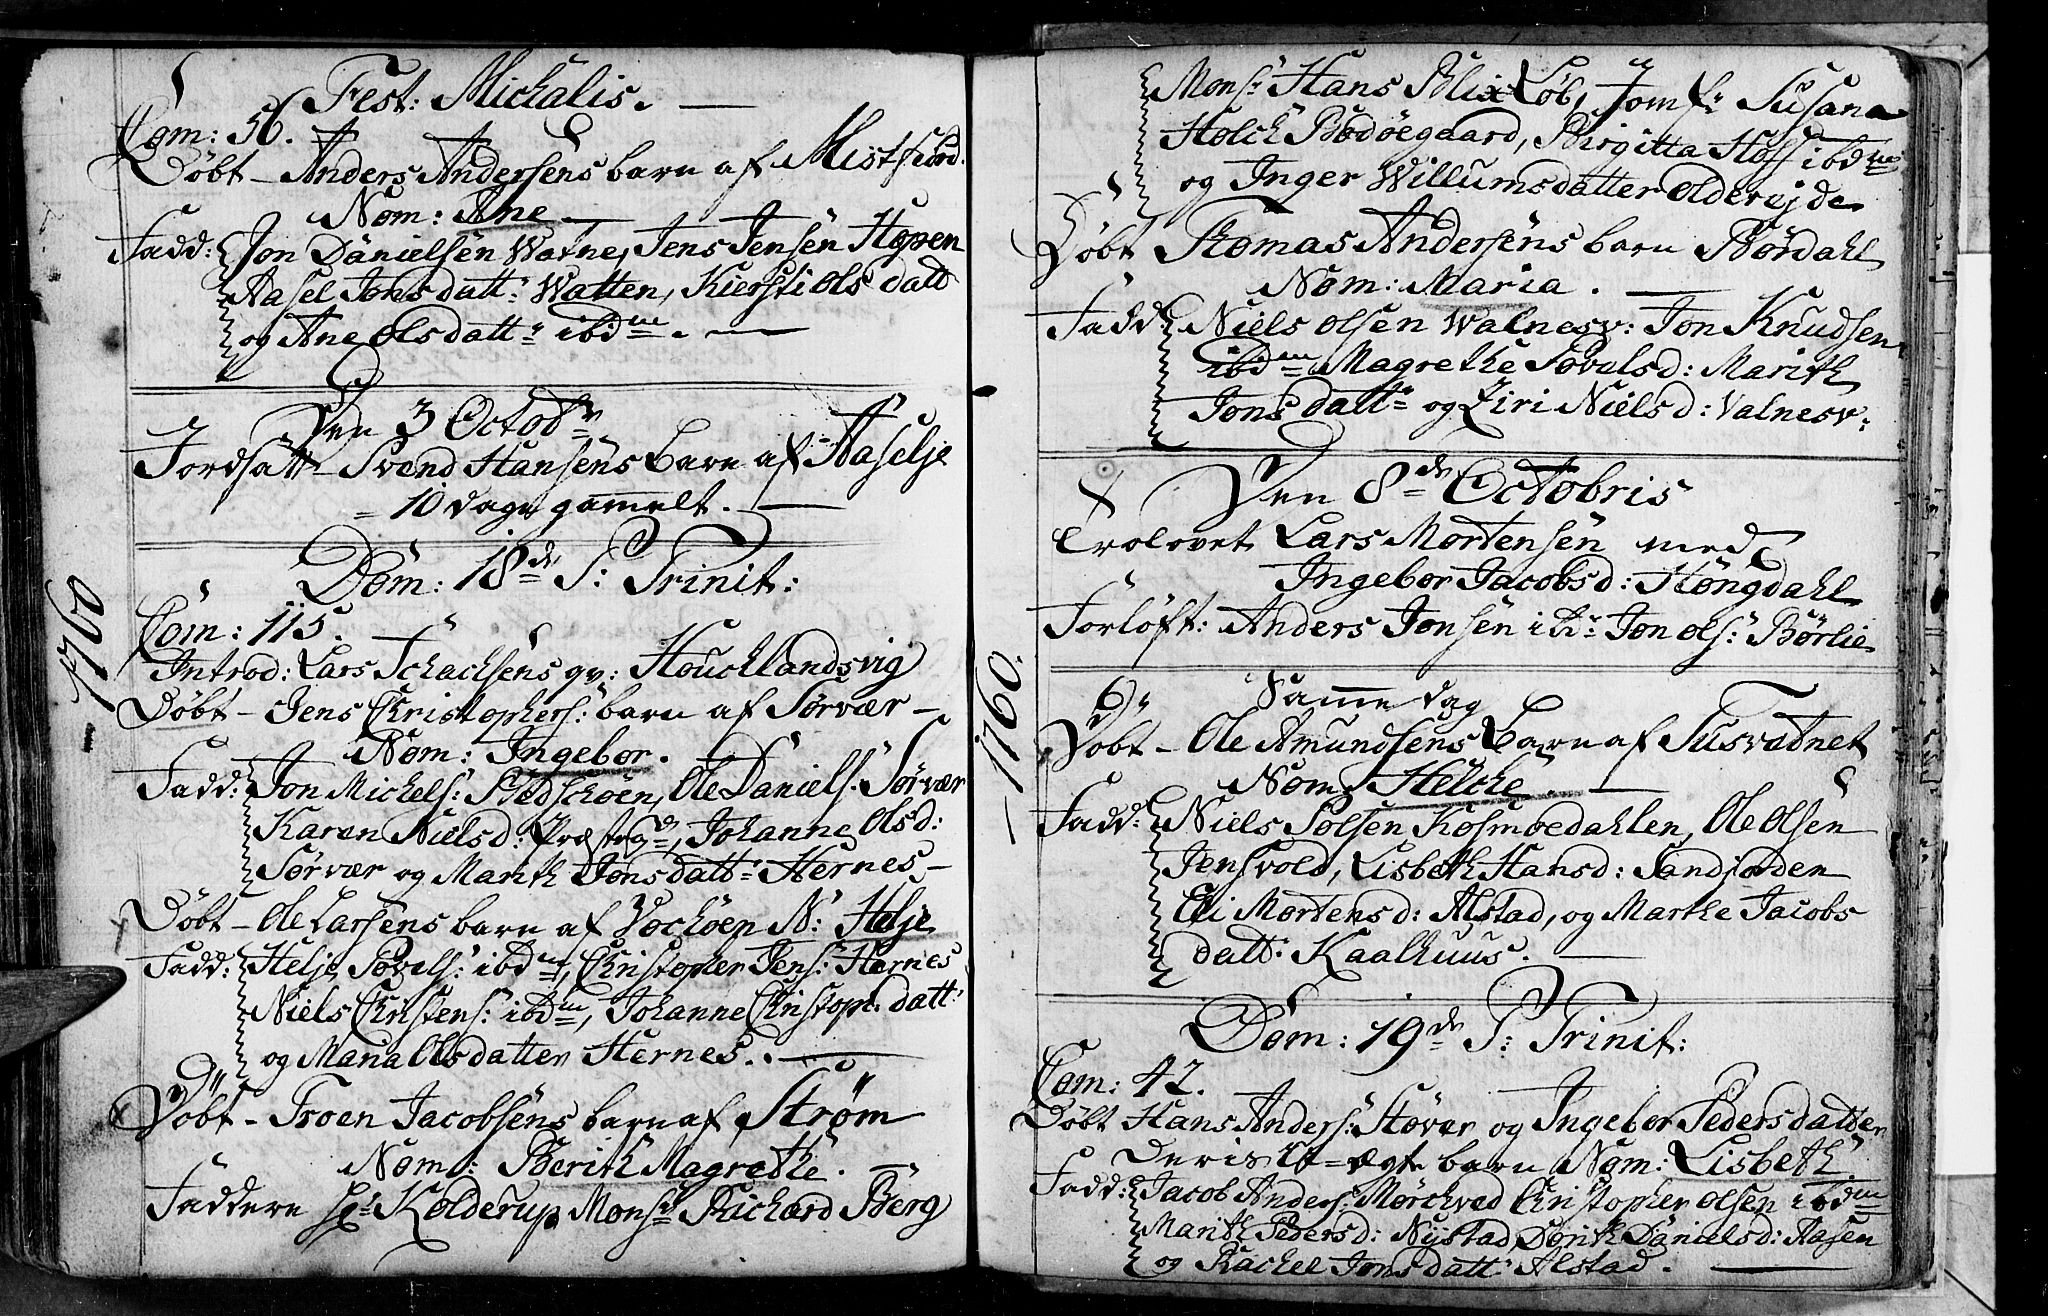 1760
Fest: Michalis.
Com: 56.
Døbt - Anders Andersens barn af Mistfiord.
Nom: Ane
Fadd: Jon Danielsen Watne, Jens Jensen Hopen
Aasel Jonsdatt: Watten, Kiersti Olsdatt
og Ane Olsdatt: ibdm.
Den 3 Octobr
Jordsatt Svend Hansens barn af Aaselje
10 dage gammelt.
Dom: 18de P: Trinit:
Com: 115.
Introd: Lars Schachsens qv: Houcklandsvig
Døbt - Jens Christophers: barn af Sørvær
Nom: Ingebor.
Fadd: Jon Michels: Bedschøen, Ole Daniels. Sørvær
Karen Nielsd: Præstegd, Johanne Olsd:
Sørvær og Marith Jonsdatt: Hernes
Døbt - Ole Larsens barn af Vochøen N: Helje
Fadd: Helje Povels: ibdm, Christopher Jens: Hernes
Niels Christens: ibdm, Johanne Christoph: datt:
og Maria Olsdatter Hernes.
Døbt - Troen Jacobsens barn af Strøm
Nom: Berith Magrethe.
Faddere Hr Kolderup Monsr Richard Berg
1760.
Monsr Hans Blix Løb, Jomfr Susana
Holck Bodøegaard, Birgitta Hoff ibdm
og Inger Willumsdatter Oldereyde
Døbt Thomas Andersens barn Børdahl
Nom: Maria.
Fadd: Niels Olsen Walnesv: Jon Knudsen
ibdm Magrethe Povelsd: Marith
Jonsdatt og Ziri Nielsd: Valnesv:
Den 8de Octobris
Trolovet Lars Mortensen med
Ingebor Jacobsd: Høngdahl
Forløft: Anders Jonsen ibd: Jon Ols: Børlie
Samme dag
Døbt - Ole Amundsens barn af Tusvatnet
Nom: Helche.
Fadd: Niels Polsen Kosmoedahlen, Ole Olsen
Jensvold, Lisbeth Hansd: Sandjorden
Eli Mortensd: Alstad, og Marthe Jacobs
datt: Kaalhuus.
Dom: 19de P: Trinit:
Com: 42.
Døbt Hans Anders: Høver og Ingebor Pedersdatter
Deris U=ægte barn Nom: Lisbeth
Fadd: Jacob Anders: Mørchved Christopher Olsen ibdm
Marith Pedersd: Nystad, Dorith Danielsd: Aasen
og Rachel Jonsdatt: Alstad.